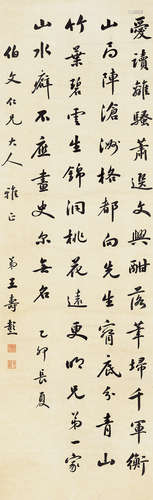 愛讀離騷蕭選文興酣落筆掃千軍衡
山局陣滄洲格都向先生腕底分青山
竹葉碧雲生錦洞桃花遠更明兄弟一家
山水癖不應畫史尔無名 乙卯長夏
伯文仁兄大人雅正
弟王壽彭